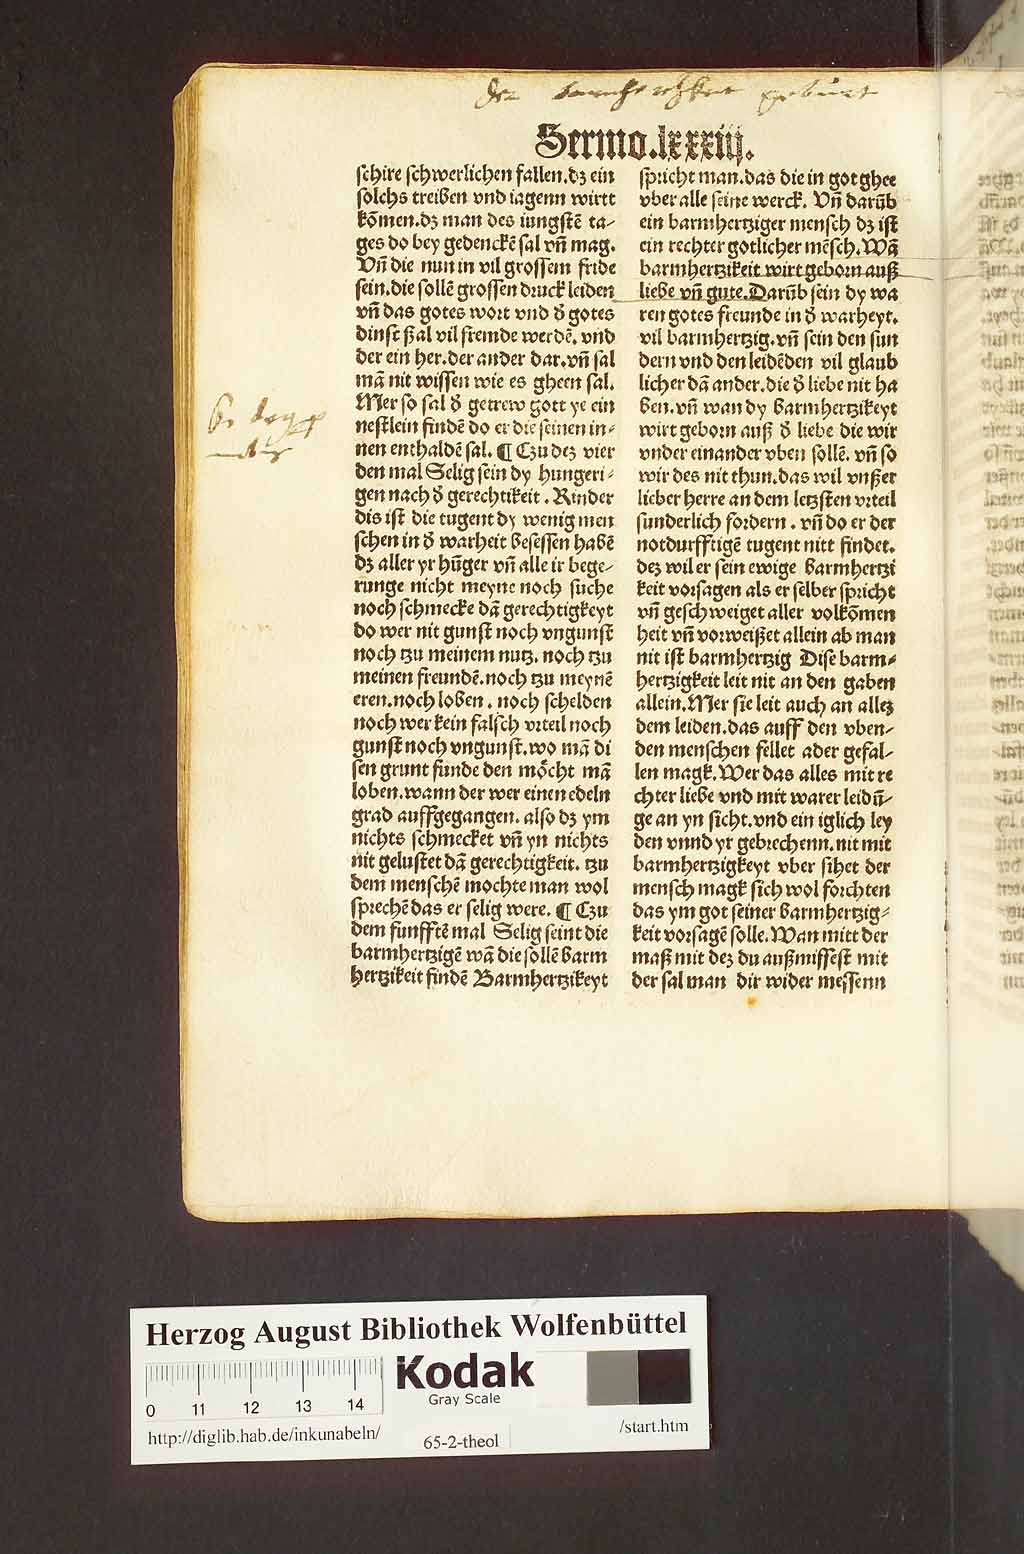 der barmhertzikeit geburt
Sermo.lxxxiiij.
schire schwerlichen fallen.dz ein
solchs treiben vnd iagenn wirtt
kōmen.dz man des iungstē ta-
ges do bey gedenckē sal vñ mag.
Vñ die nun in vil grossem fride
sein.die sollē grossen druck leiden
vñ das gotes wort vnd d̄ gotes
dinst ßal vil fremde werdē. vnd
der ein her.der ander dar.vñ sal
mā nit wissen wie es gheen sal.
Mer so sal d̄ getrew gott ye ein
nestlein findē do er die seinen in-
nen enthaldē sal. ¶ Czu dez vier
den mal Selig sein dy hungeri-
gen nach d̄ gerechtikeit . Kinder
dis ist die tugent dy wenig men
schen in d̄ warheit besessen habē
dz aller yr hūger vñ alle ir bege-
runge nicht meyne noch suche
noch schmecke dā gerechtigkeyt
do wer nit gunst noch vngunst
noch tzu meinem nutz. noch tzu
meinen freundē.noch tzu meynē
eren.noch loben . noch schelden
noch wer kein falsch vrteil noch
gunst noch vngunst.wo mā di
sen grunt funde den mȯcht mā
loben.wann der wer einen edeln
grad auffgegangen. also dz ym
nichts schmecket vñ yn nichts
nit gelustet dā gerechtigkeit. tzu
dem menschē mochte man wol
sprechē das er selig were. ¶ Czu
dem funfftē mal Selig seint die
barmhertzigē wā die sollē barm
hertzikeit findē Barmhertzikeyt
spricht man.das die in got ghee
vber alle seine werck. Vñ darūb
ein barmhertziger mensch dz ist
ein rechter gotlicher mēsch.Wā
barmhertzikeit wirt geborn auß
liebe vñ gute.Darūb sein dy wa
ren gotes freunde in d̄ warheyt.
vil barmhertzig.vñ sein den sun
dern vnd den leidēden vil glaub
licher dā ander.die d̄ liebe nit ha
ben.vñ wan dy barmhertzikeyt
wirt geborn auß d̄ liebe die wir
vnder einander vben sollē. vñ so
wir des nit thun.das wil vnßer
lieber herre an dem letzsten vrteil
sunderlich fordern . vñ do er der
notdurfftigē tugent nitt findet.
dez wil er sein ewige barmhertzi
keit vorsagen als er selber spricht
vñ geschweiget aller volkōmen
heit vñ vorweißet allein ab man
nit ist barmhertzig Dise barm-
hertzigkeit leit nit an den gaben
allein.Mer sie leit auch an allez
dem leiden.das auff den vben-
den menschen fellet ader gefal-
len magk.Wer das alles mit re
chter liebe vnd mit warer leidū-
ge an yn sicht.vnd ein iglich ley
den vnnd yr gebrechenn.nit mit
barmhertzigkeyt vber sihet der
mensch magk sich wol forchten
das ym got seiner barmhertzig-
keit vorsagē solle.Wan mitt der
maß mit dez du außmissest mit
der sal man dir wider messenn
Herzog August Bibliothek Wolfenbüttel
0 11 12 13 14
Kodak
Gray Scale
http://diglib.hab.de/inkunabeln/
65-2-theol
/start.htm